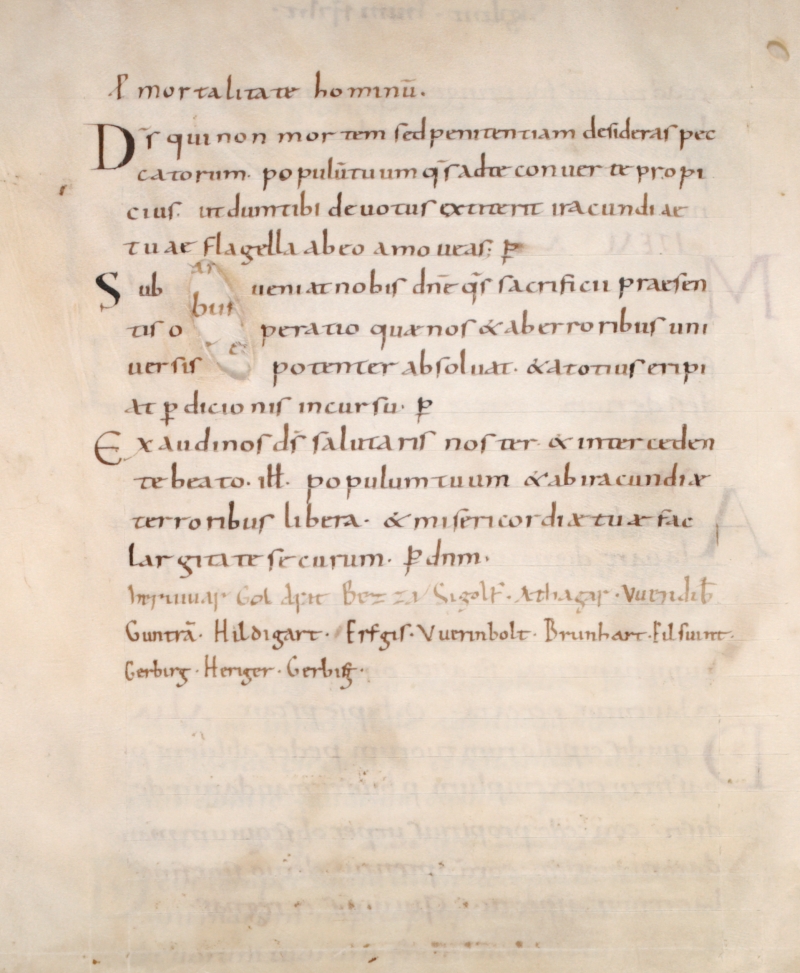 P mortalitate hominū.
Ds̄ qui non mortem sed penitentiam desideras pec
catorum. populū tuum qs̄ ad te conuerte propi
cius. ut dum tibi deuotus extiterit iracundiae
tuae flagella ab eo amoueas. p
Sub ueniat nobis dn̄e qs̄ sacrificii praesen
tis operatio quæ nos & ab erroribus uni
uersis potenter absoluat. & a totius eripi
at ꝑdicionis incursu. p
Exaudi nos ds̄ salutaris noster & interceden
te beato. ill̄. populum tuum & ab iracundiæ
terroribus libera. & misericordiæ tuæ fac
largitate securum. p dnm.
Bezzi Sigolf. Athagar.
Guntrā. Hildigart. Erfgis. Vuerinbolt. Brunhart. Filsuint.
Gerbirg. Heriger. Gerbirg.